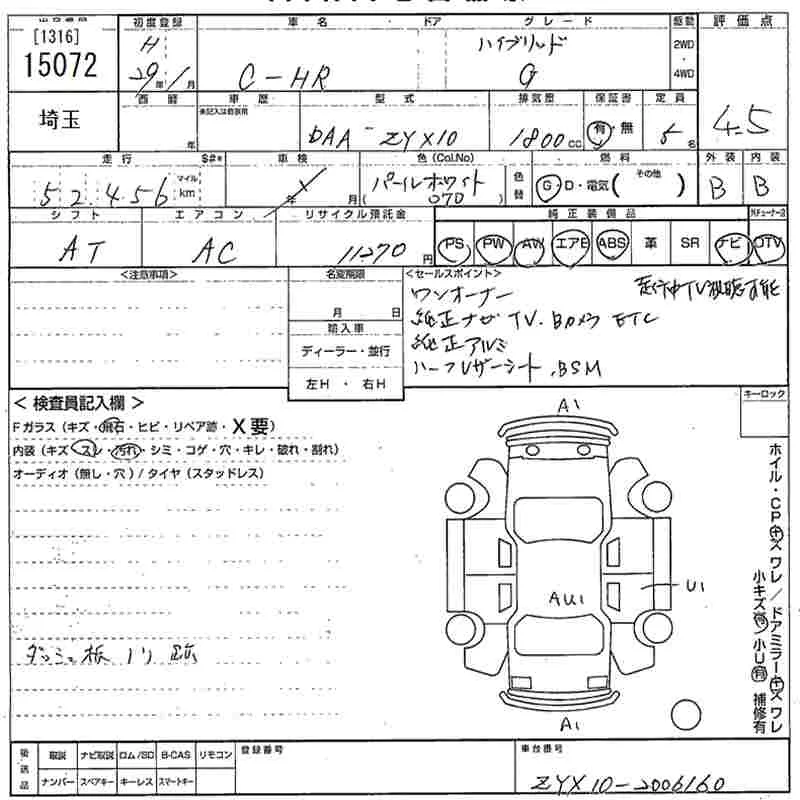 出品番号 初度登録 車名 ドア グレード 駆動 評価点
[1316] H ハイブリッド 2WD
15072 29年 1月 C-HR G ・
4WD
埼玉 西暦 車歴 型式 排気量 保証書 定員 4.5
未記入は自家用
年 DAA-ZYX10 1800cc 有・無 5名
走行 $#* 車検 色(Col.No) 燃料 外装 内装
52,456 マイル km 年 月 (パールホワイト 070) 色替 G・D・電気( その他 ) B B
シフト エアコン リサイクル預託金 純正装備品
AT AC 11270円 PS PW AW エアB ABS 革 SR ナビ DTV
<注意事項> 名変期限 <セールスポイント>
月 日 ワンオーナー 走行中TV視聴可能
輸入車 純正ナビ TV.Bカメラ ETC
ディーラー・並行 純正アルミ
左H・右H ハーフレザーシート,BSM
< 検査員記入欄 > キーロック
Fガラス(キズ・飛石・ヒビ・リペア跡・X要)
内装(キズ・スレ・汚れ・シミ・コゲ・穴・キレ・破れ・割れ)
オーディオ(無し・穴)/タイヤ(スタッドレス)
A1
U1
AU1
A1
ダッシュ板 ノリ跡
ホイル・CP キズ ワレ/ドアミラー キズ ワレ
小キズ有 小U有 補修有
後送品 取説 ナビ取説 ロム/SD B-CAS リモコン 登録番号 車台番号
ナンバー スペアキー キーレス スマートキー ZYX10-2006160